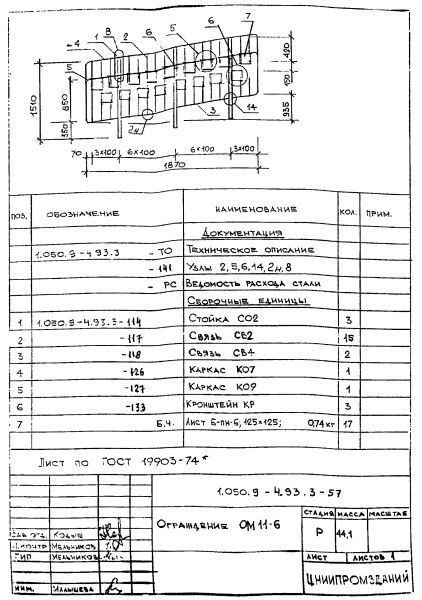 1 8 2 6 5 6 7
4
5
1510
850
350
420
150
935
14
2н
3
70 3×100 6×100 6×100 3×100
1870
ПОЗ. ОБОЗНАЧЕНИЕ НАИМЕНОВАНИЕ КОЛ. ПРИМ.
ДОКУМЕНТАЦИЯ
1.050.9-4.93.3 - ТО ТЕХНИЧЕСКОЕ ОПИСАНИЕ
- 141 УЗЛЫ 2, 5, 6, 14, 2н, 8
- РС ВЕДОМОСТЬ РАСХОДА СТАЛИ
СБОРОЧНЫЕ ЕДИНИЦЫ
1 1.050.9-4.93.3-114 СТОЙКА СО2 3
2 -117 СВЯЗЬ СВ2 15
3 -118 СВЯЗЬ СВ4 2
4 -126 КАРКАС КО7 1
5 -127 КАРКАС КО9 1
6 -133 КРОНШТЕЙН КР 3
7 Б.Ч. ЛИСТ Б-ПН-6; 125×125; 0,74 кг 17
ЛИСТ ПО ГОСТ 19903-74*
1.050.9-4.93.3-57
ОГРАЖДЕНИЕ ОМ 11-6
СТАДИЯ МАССА МАСШТАБ
Р 44,1
ЛИСТ ЛИСТОВ 1
ЦНИИПРОМЗДАНИЙ
Н.КОНТР МЕЛЬНИКОВ
ГИП МЕЛЬНИКОВ
ИНЖ. МАЛЫШЕВА